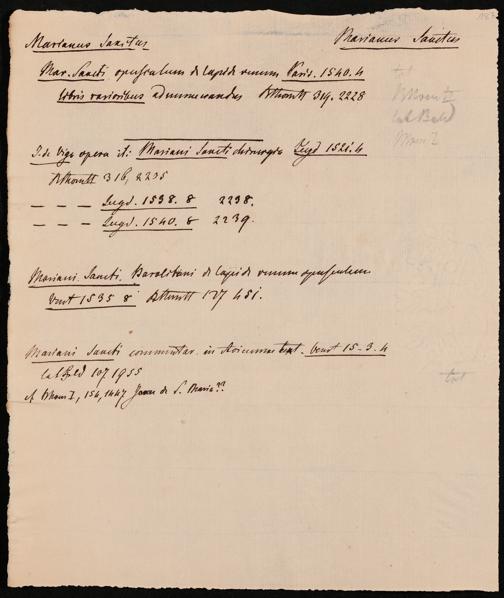 Marianus Sanctus
Marianus Sanctus
Mar. Sancti opusculum de lapide renum Paris. 1540. 4
libris rarioribus adnumerandus Bthom II 319. 2228
J. de Vigo opera it: Mariani Sancti chirurgia Lugd 1521. 4
Bthom II 316, 2235
— — — Lugd. 1538. 8 2238.
— — — Lugd. 1540. 8 2239.
Mariani Sancti. Barolitani de lapide renum opusculum
Venet 1535 8 Bthom II 127 451.
Mariani Sancti commentar. in Avicennae text. Venet 15-3. 4
107 1955
cf Bthom I, 154, 1447 de S. Maria??